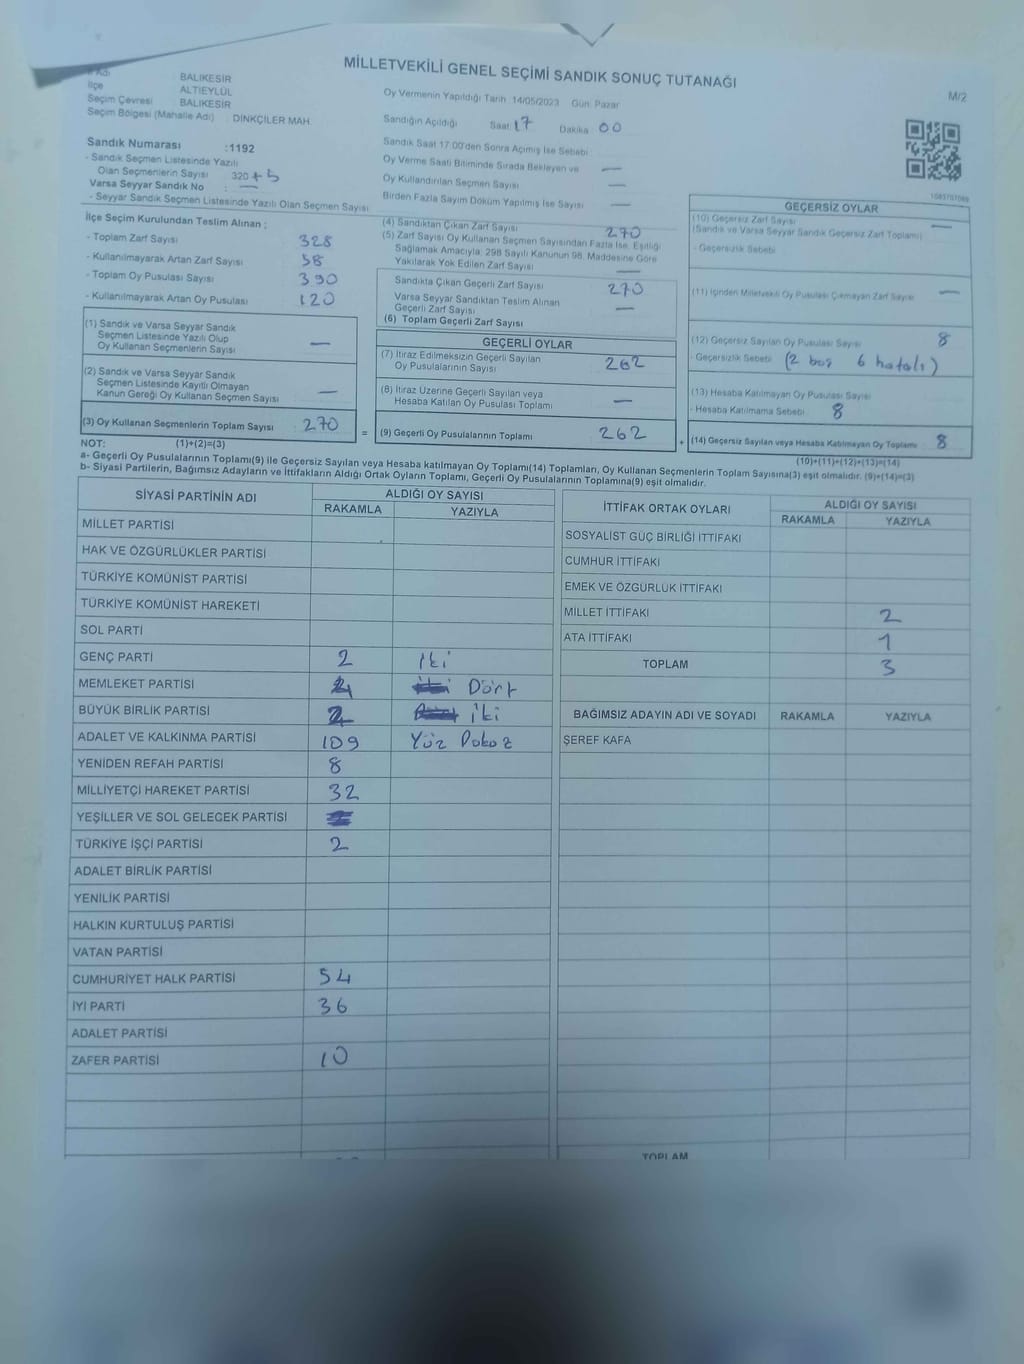 MİLLETVEKİLİ GENEL SEÇİMİ SANDIK SONUÇ TUTANAĞI
M/2
Adı BALIKESİR
İlçe ALTIEYLÜL
Seçim Çevresi BALIKESİR
Seçim Bölgesi (Mahalle Adı) : DİNKÇİLER MAH
Oy Vermenin Yapıldığı Tarih 14/05/2023 Gün: Pazar
Sandığın Açıldığı Saat 17 Dakika 00
Sandık Numarası :1192
- Sandık Seçmen Listesinde Yazılı
Olan Seçmenlerin Sayısı 320 + 5
Varsa Seyyar Sandık No : —
- Seyyar Sandık Seçmen Listesinde Yazılı Olan Seçmen Sayısı
Sandık Saat 17:00'den Sonra Açılmış İse Sebebi
Oy Verme Saati Bitiminde Sırada Bekleyen ve —
Oy Kullandırılan Seçmen Sayısı —
Birden Fazla Sayım Döküm Yapılmış İse Sayısı —
İlçe Seçim Kurulundan Teslim Alınan ;
- Toplam Zarf Sayısı 328
- Kullanılmayarak Artan Zarf Sayısı 58
- Toplam Oy Pusulası Sayısı 390
- Kullanılmayarak Artan Oy Pusulası 120
(1) Sandık ve Varsa Seyyar Sandık
Seçmen Listesinde Yazılı Olup
Oy Kullanan Seçmenlerin Sayısı —
(2) Sandık ve Varsa Seyyar Sandık
Seçmen Listesinde Kayıtlı Olmayan
Kanun Gereği Oy Kullanan Seçmen Sayısı —
(3) Oy Kullanan Seçmenlerin Toplam Sayısı 270 =
(4) Sandıktan Çıkan Zarf Sayısı 270
(5) Zarf Sayısı Oy Kullanan Seçmen Sayısından Fazla İse, Eşitliği
Sağlamak Amacıyla, 298 Sayılı Kanunun 98. Maddesine Göre
Yakılarak Yok Edilen Zarf Sayısı —
Sandıkta Çıkan Geçerli Zarf Sayısı 270
Varsa Seyyar Sandıktan Teslim Alınan
Geçerli Zarf Sayısı —
(6) Toplam Geçerli Zarf Sayısı
GEÇERLİ OYLAR
(7) İtiraz Edilmeksizin Geçerli Sayılan
Oy Pusulalarının Sayısı 262
(8) İtiraz Üzerine Geçerli Sayılan veya
Hesaba Katılan Oy Pusulası Toplamı —
(9) Geçerli Oy Pusulalarının Toplamı 262 +
GEÇERSİZ OYLAR
(10) Geçersiz Zarf Sayısı
(Sandık ve Varsa Seyyar Sandık Geçersiz Zarf Toplamı) —
- Geçersizlik Sebebi
(11) İçinden Milletvekili Oy Pusulası Çıkmayan Zarf Sayısı —
(12) Geçersiz Sayılan Oy Pusulası Sayısı 8
- Geçersizlik Sebebi (2 boş 6 hatalı)
(13) Hesaba Katılmayan Oy Pusulası Sayısı
- Hesaba Katılmama Sebebi 8
(14) Geçersiz Sayılan veya Hesaba Katılmayan Oy Toplamı 8
NOT: (1)+(2)=(3)
(10)+(11)+(12)+(13)=(14)
a- Geçerli Oy Pusulalarının Toplamı(9) ile Geçersiz Sayılan veya Hesaba katılmayan Oy Toplamı(14) Toplamları, Oy Kullanan Seçmenlerin Toplam Sayısına(3) eşit olmalıdır. (9)+(14)=(3)
b- Siyasi Partilerin, Bağımsız Adayların ve İttifakların Aldığı Oyların Toplamı, Geçerli Oy Pusulalarının Toplamına(9) eşit olmalıdır.
SİYASİ PARTİNİN ADI ALDIĞI OY SAYISI
RAKAMLA YAZIYLA
MİLLET PARTİSİ
HAK VE ÖZGÜRLÜKLER PARTİSİ
TÜRKİYE KOMÜNİST PARTİSİ
TÜRKİYE KOMÜNİST HAREKETİ
SOL PARTİ
GENÇ PARTİ 2 İki
MEMLEKET PARTİSİ 4 Dört
BÜYÜK BİRLİK PARTİSİ 2 iki
ADALET VE KALKINMA PARTİSİ 109 Yüz Dokoz
YENİDEN REFAH PARTİSİ 8
MİLLİYETÇİ HAREKET PARTİSİ 32
YEŞİLLER VE SOL GELECEK PARTİSİ
TÜRKİYE İŞÇİ PARTİSİ 2
ADALET BİRLİK PARTİSİ
YENİLİK PARTİSİ
HALKIN KURTULUŞ PARTİSİ
VATAN PARTİSİ
CUMHURİYET HALK PARTİSİ 54
İYİ PARTİ 36
ADALET PARTİSİ
ZAFER PARTİSİ 10
İTTİFAK ORTAK OYLARI ALDIĞI OY SAYISI
RAKAMLA YAZIYLA
SOSYALİST GÜÇ BİRLİĞİ İTTİFAKI
CUMHUR İTTİFAKI
EMEK VE ÖZGÜRLÜK İTTİFAKI
MİLLET İTTİFAKI 2
ATA İTTİFAKI 1
TOPLAM 3
BAĞIMSIZ ADAYIN ADI VE SOYADI RAKAMLA YAZIYLA
ŞEREF KAFA
TOPLAM